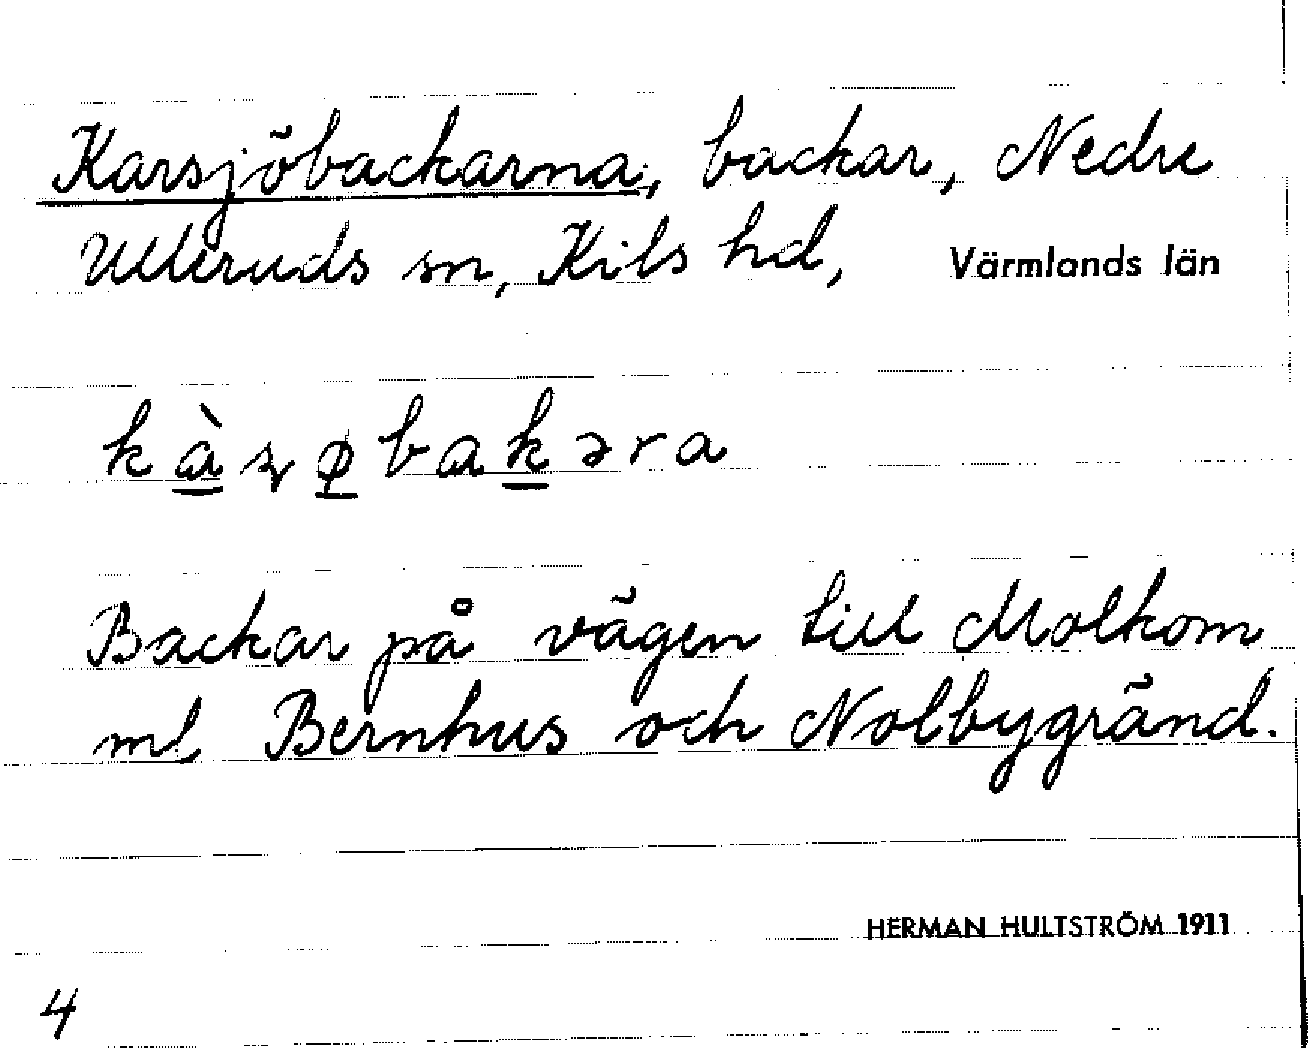 Karsjöbackarna, backar, Nedre
Ulleruds sn, Kils hd, Värmlands län
kàʂøbakəra
Backar på vägen till Molkom
ml Bernhus och Nolbygränd.
HERMAN HULTSTRÖM 1911
4